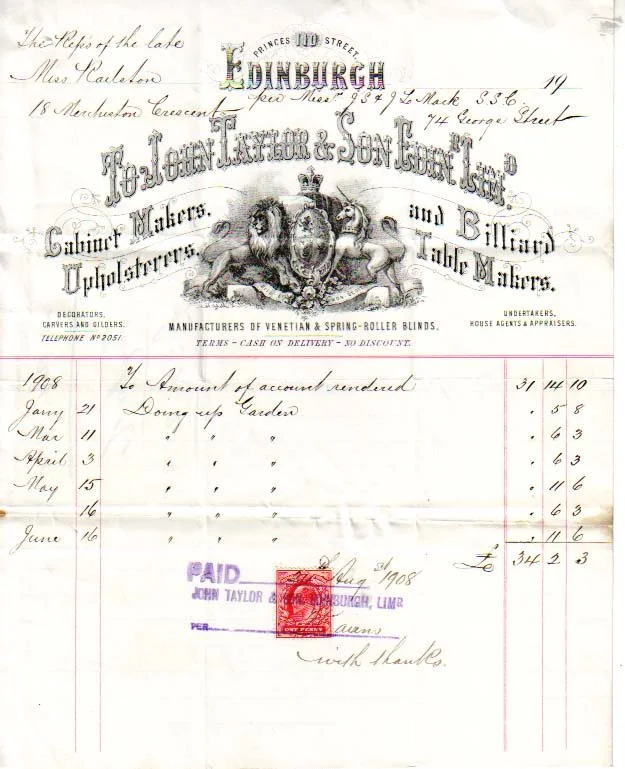 The Reps of the late
Miss Railston
18 Merchiston Crescent
PRINCES 110 STREET,
EDINBURGH
19
per Messrs J S & J Lo Mack S.S.C.
74 George Street
TO JOHN TAYLOR & SON EDINR LIMD
Cabinet Makers,
Upholsterers,
and Billiard
Table Makers.
DECORATORS,
CARVERS AND GILDERS.
TELEPHONE No 2051.
MANUFACTURERS OF VENETIAN & SPRING-ROLLER BLINDS.
TERMS - CASH ON DELIVERY - NO DISCOUNT.
UNDERTAKERS,
HOUSE AGENTS & APPRAISERS.
1908 To Amount of account rendered 31 14 10
Jany 21 Doing up Garden " 5 8
Mar 11 " " " " 6 3
April 3 " " " " 6 3
May 15 " " " " 11 6
16 " " " " 6 3
June 16 " " " " 11 6
£ 34 2 3
PAID
Aug 1908
JOHN TAYLOR & SON, EDINBURGH, LIMD
PER
ONE PENNY
with thanks.